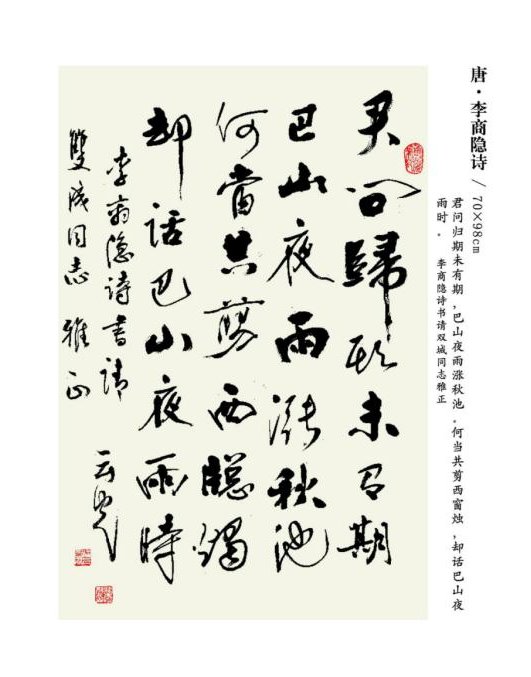 唐·李商隐诗 / 70×98cm
君问归期未有期，巴山夜雨涨秋池。何当共剪西窗烛，却话巴山夜
雨时。 李商隐诗书请双城同志雅正
君问歸期未有期
巴山夜雨漲秋池
何當共剪西窓燭
却話巴山夜雨時
李商隐詩書請
雙成同志雅正